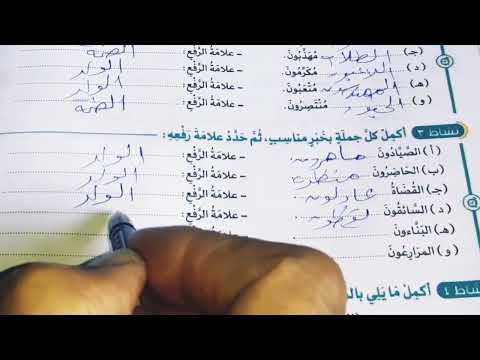 (ج) الطلاب مُهَذَّبُونَ. - علامَةُ الرَّفْعِ: الضمة
(د) اللاعبون مُكَرَّمُونَ. - علامَةُ الرَّفْعِ: الواو
(هـ) المهندسون مُتْعَبُونَ. - علامَةُ الرَّفْعِ: الواو
(و) الجنود مُنْتَصِرُونَ. - علامَةُ الرَّفْعِ: الضمة
نشاط ٣ أَكمِلْ كلَّ جملةٍ بخَبَرٍ مناسِبٍ، ثُمَّ حَدِّدْ علامَةَ رَفْعِهِ:
(أ) الصَّيَّادُونَ ماهرون. - علامَةُ الرَّفْعِ: الواو
(ب) الحَاضِرُونَ - علامَةُ الرَّفْعِ: الواو
(جـ) القُضَاةُ عادلون. - علامَةُ الرَّفْعِ: الواو
(د) السائقونَ - علامَةُ الرَّفْعِ:
(هـ) البَنَّاءُونَ
(و) المزارعونَ
نشاط ٤ أَكمِلْ مَا يَلِي